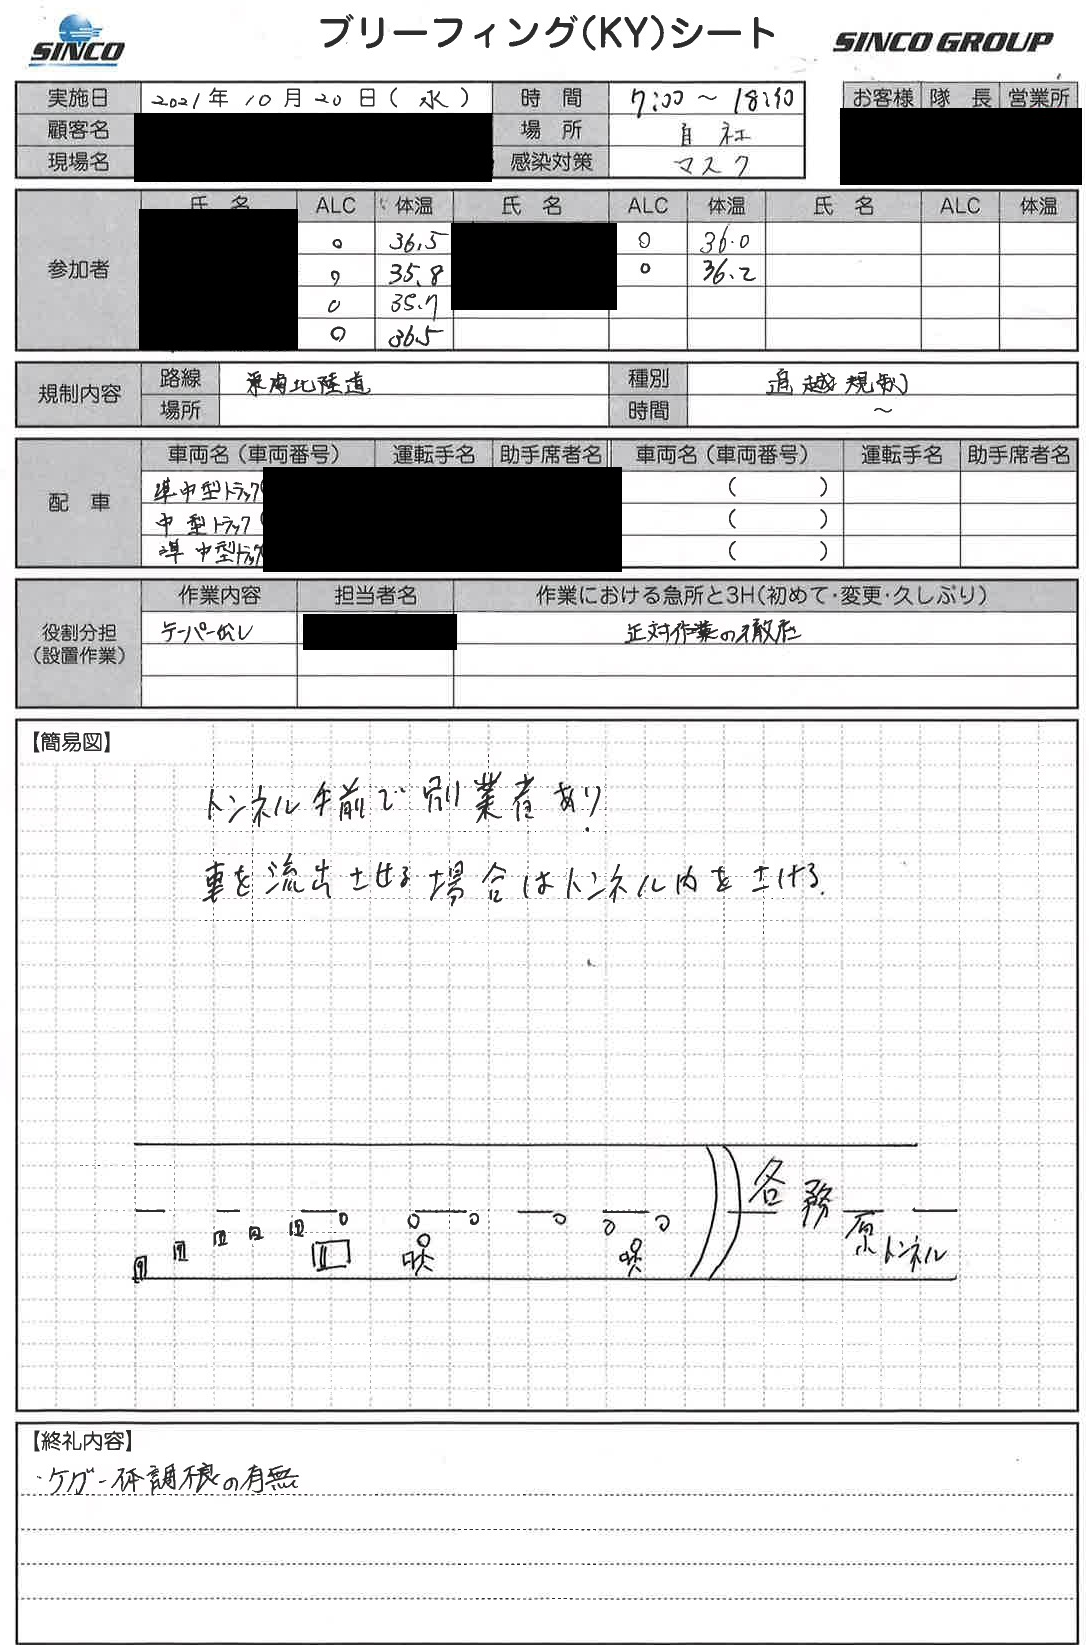 SINCO
ブリーフィング(KY)シート
SINCO GROUP
実施日 2021年10月20日(水) 時 間 7:00 ～ 18:40
お客様 隊 長 営業所
顧客名 場 所 自社
現場名 感染対策 マスク
氏 名 ALC 体温 氏 名 ALC 体温 氏 名 ALC 体温
参加者
0 36.5 0 36.0
0 35.8 0 36.2
0 35.7
0 36.5
規制内容 路線 東海北陸道 種別 追越規制
場所 時間 ～
配 車 車両名(車両番号) 運転手名 助手席者名 車両名(車両番号) 運転手名 助手席者名
準中型トラック( ( )
中型トラック( ( )
準中型トラック ( )
役割分担
(設置作業)
作業内容 担当者名 作業における急所と3H(初めて・変更・久しぶり)
テーパー伝し 正対作業の徹底
【簡易図】
トンネル手前で別業者あり.
車を流出させる場合はトンネル内をさける.
各務原トンネル
【終礼内容】
・ケガ-体調不良の有無